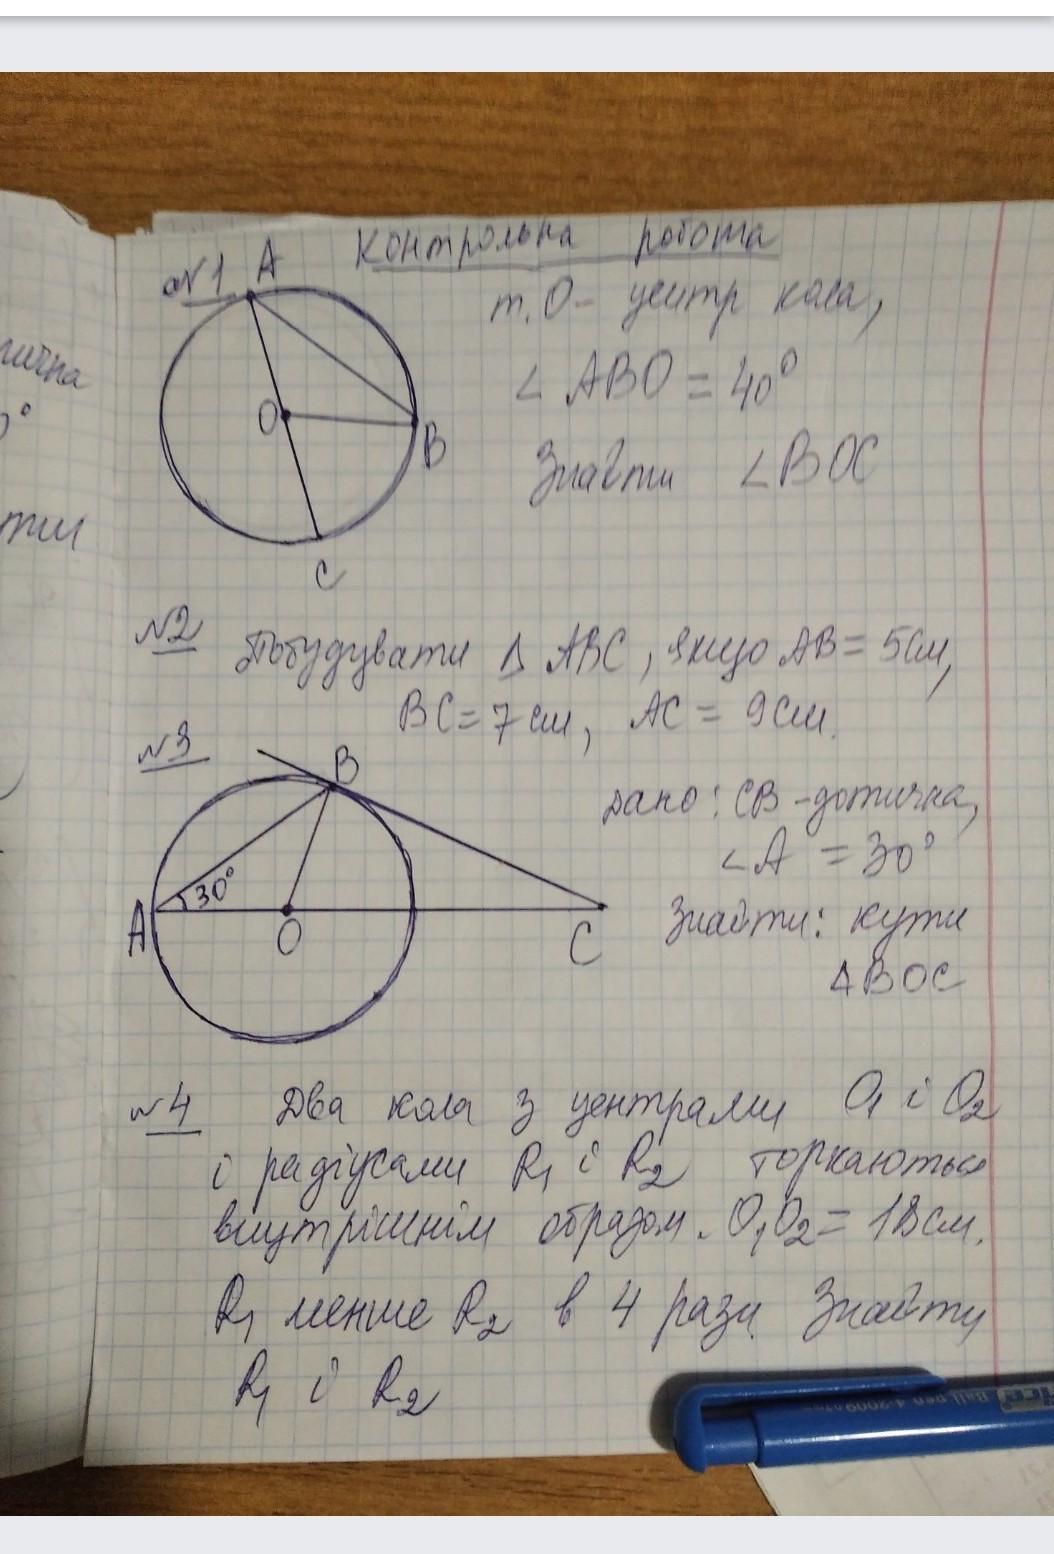 Контрольна робота
№1 A
т. О - центр кола,
∠ ABO = 40°
O
B
Знайти ∠BOC
C
№2 Побудувати Δ ABC, якщо AB = 5см,
BC = 7 см, AC = 9 см.
№3
B
Дано: CB - дотична,
∠A = 30°
30°
A
O
C
Знайти: кути
ΔBOC
№4 Два кола з центрами O₁ і O₂
і радіусами R₁ і R₂ торкаються
внутрішнім образом. O₁O₂ = 18 см.
R₁ менше R₂ в 4 рази. Знайти
R₁ і R₂